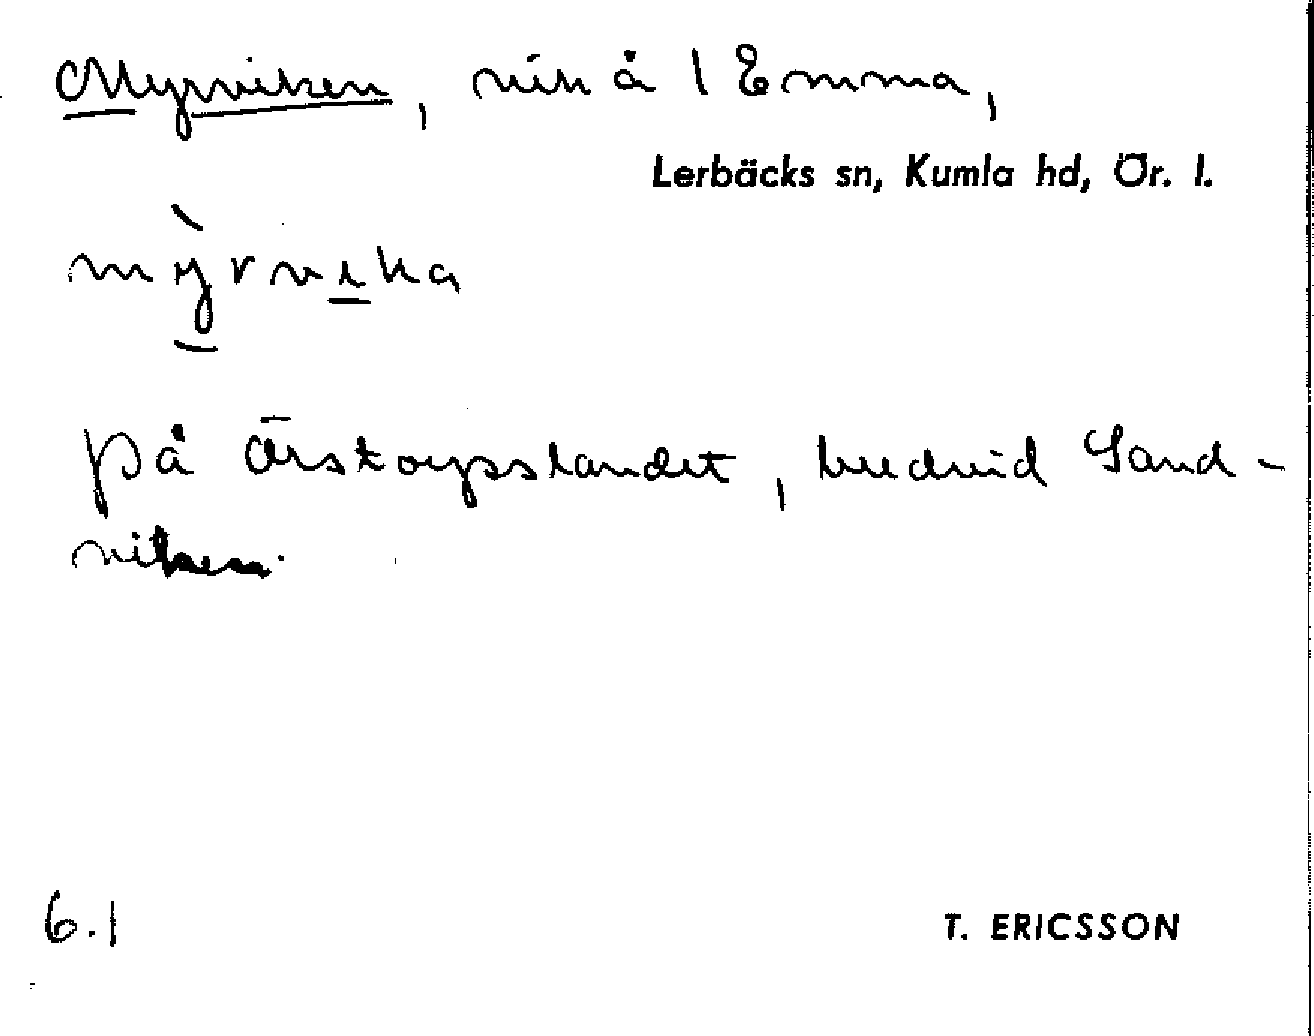 Myrviken, vik å 1 Emma,
Lerbäcks sn, Kumla hd, Ör. l.
mỳrvika
på Årstorpslandet, bredvid Sand-
viken.
6.1
T. ERICSSON